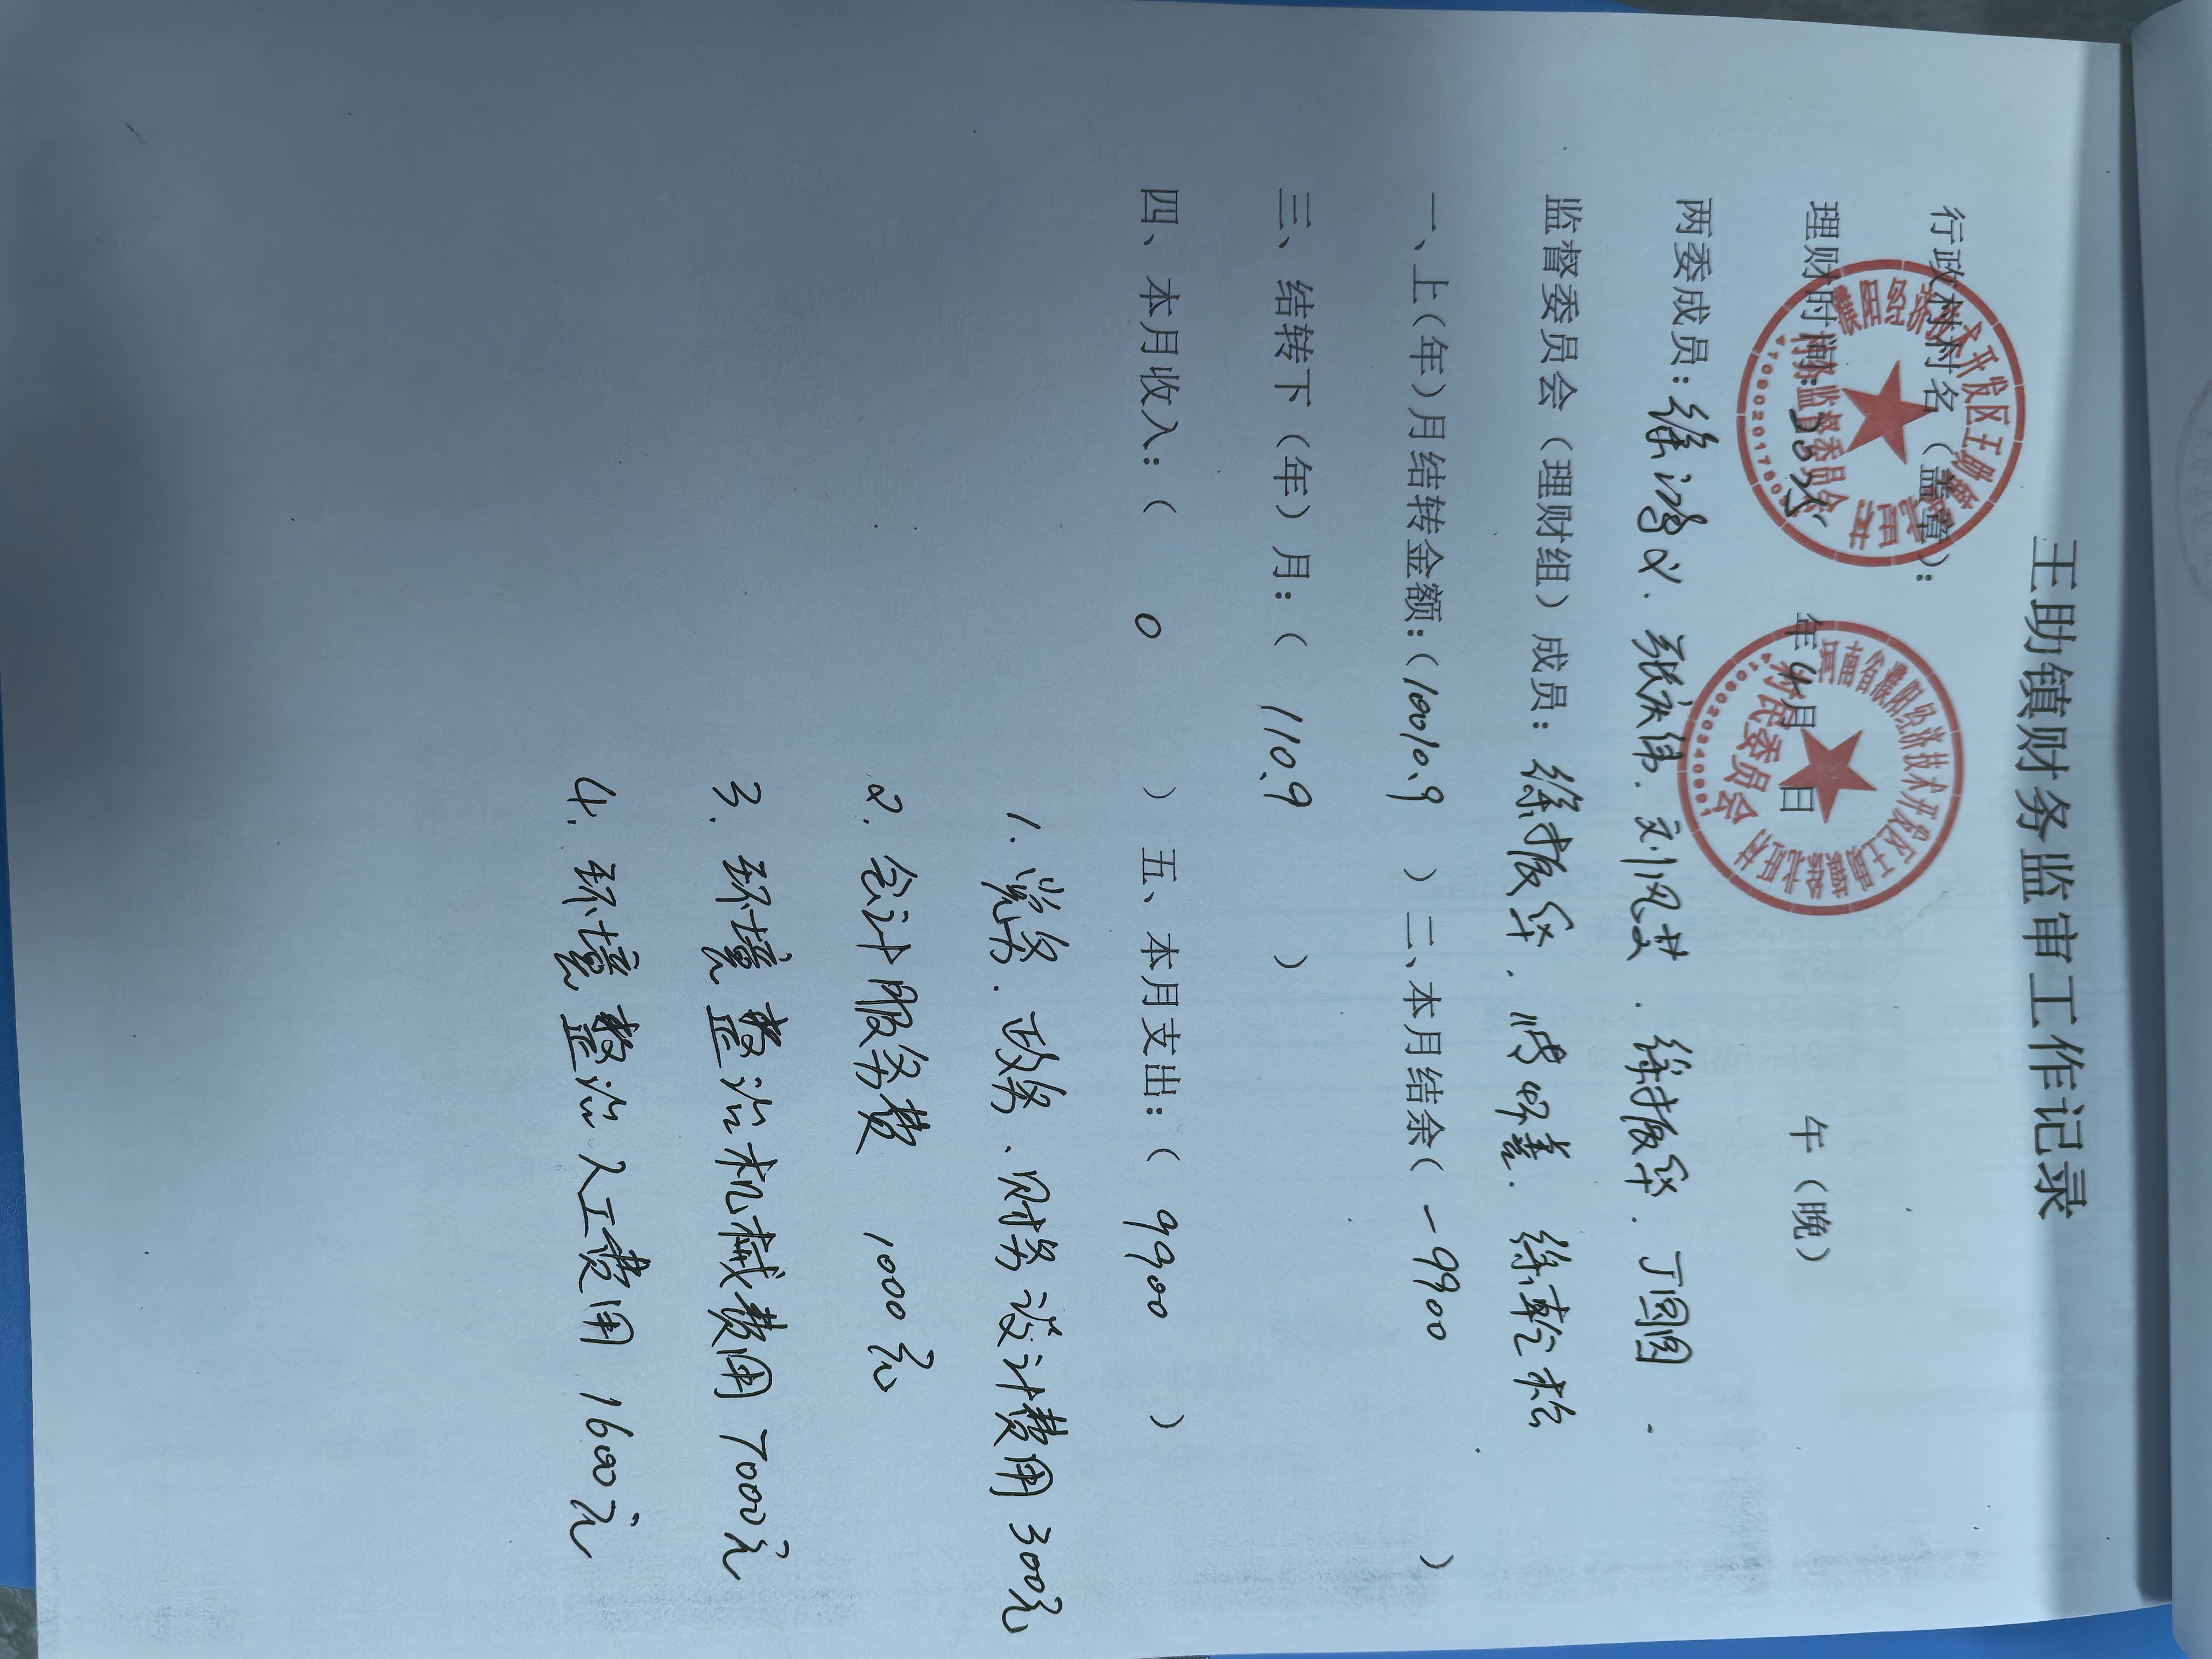 王助镇财务监审工作记录
行政村村名（盖章）：
理财时间：2025年4月 日 午（晚）
两委成员：徐鸿义、张庆伟、刘凤芝、徐振华、丁圆圆
监督委员会（理财组）成员：徐振华、徐松
一、上（年）月结转金额：（10010.9 ）二、本月结余（ -9900 ）
三、结转下（年）月：（ 110.9 ）
四、本月收入：（ 0 ）五、本月支出：（ 9900 ）
1. 党务、政务、财务设计费用 300元
2. 会计服务费 1000元
3. 环境整治机械费用 7000元
4. 环境整治人工费用 1600元
濮阳经济技术开发区王助镇
村务监督委员会
河南省濮阳经济技术开发区王助镇徐北旺村
村民委员会